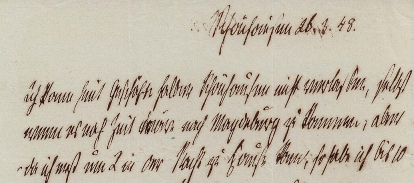 Schönhausen 26. 3. 48.
ich kann heut Geschäfte halber Schönhausen nicht verlassen, selbst
wenn es noch Zeit wäre nach Magdeburg zu kommen; aber
da ich erst um 2 in der Nacht zu Hause kam, so habe ich bis 10